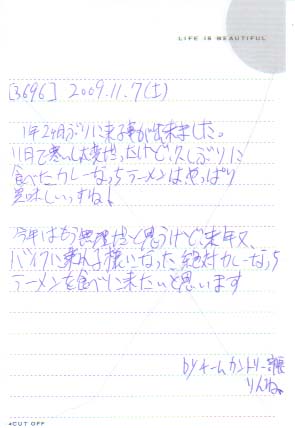 LIFE IS BEAUTIFUL
[3696] 2009.11.7(土)
1年2ヶ月ぶりに来る事が出来ました。
11日で寒いし大変だったけど、久しぶりに
食べたカレーなっちラーメンはやっぱり
美味しいっすね。
今年はもう無理だと思うけど来年又、
バイクに乗れる様になったら絶対カレーなっち
ラーメンを食べに来たいと思います
byチームカントリー
りんね。
CUT OFF